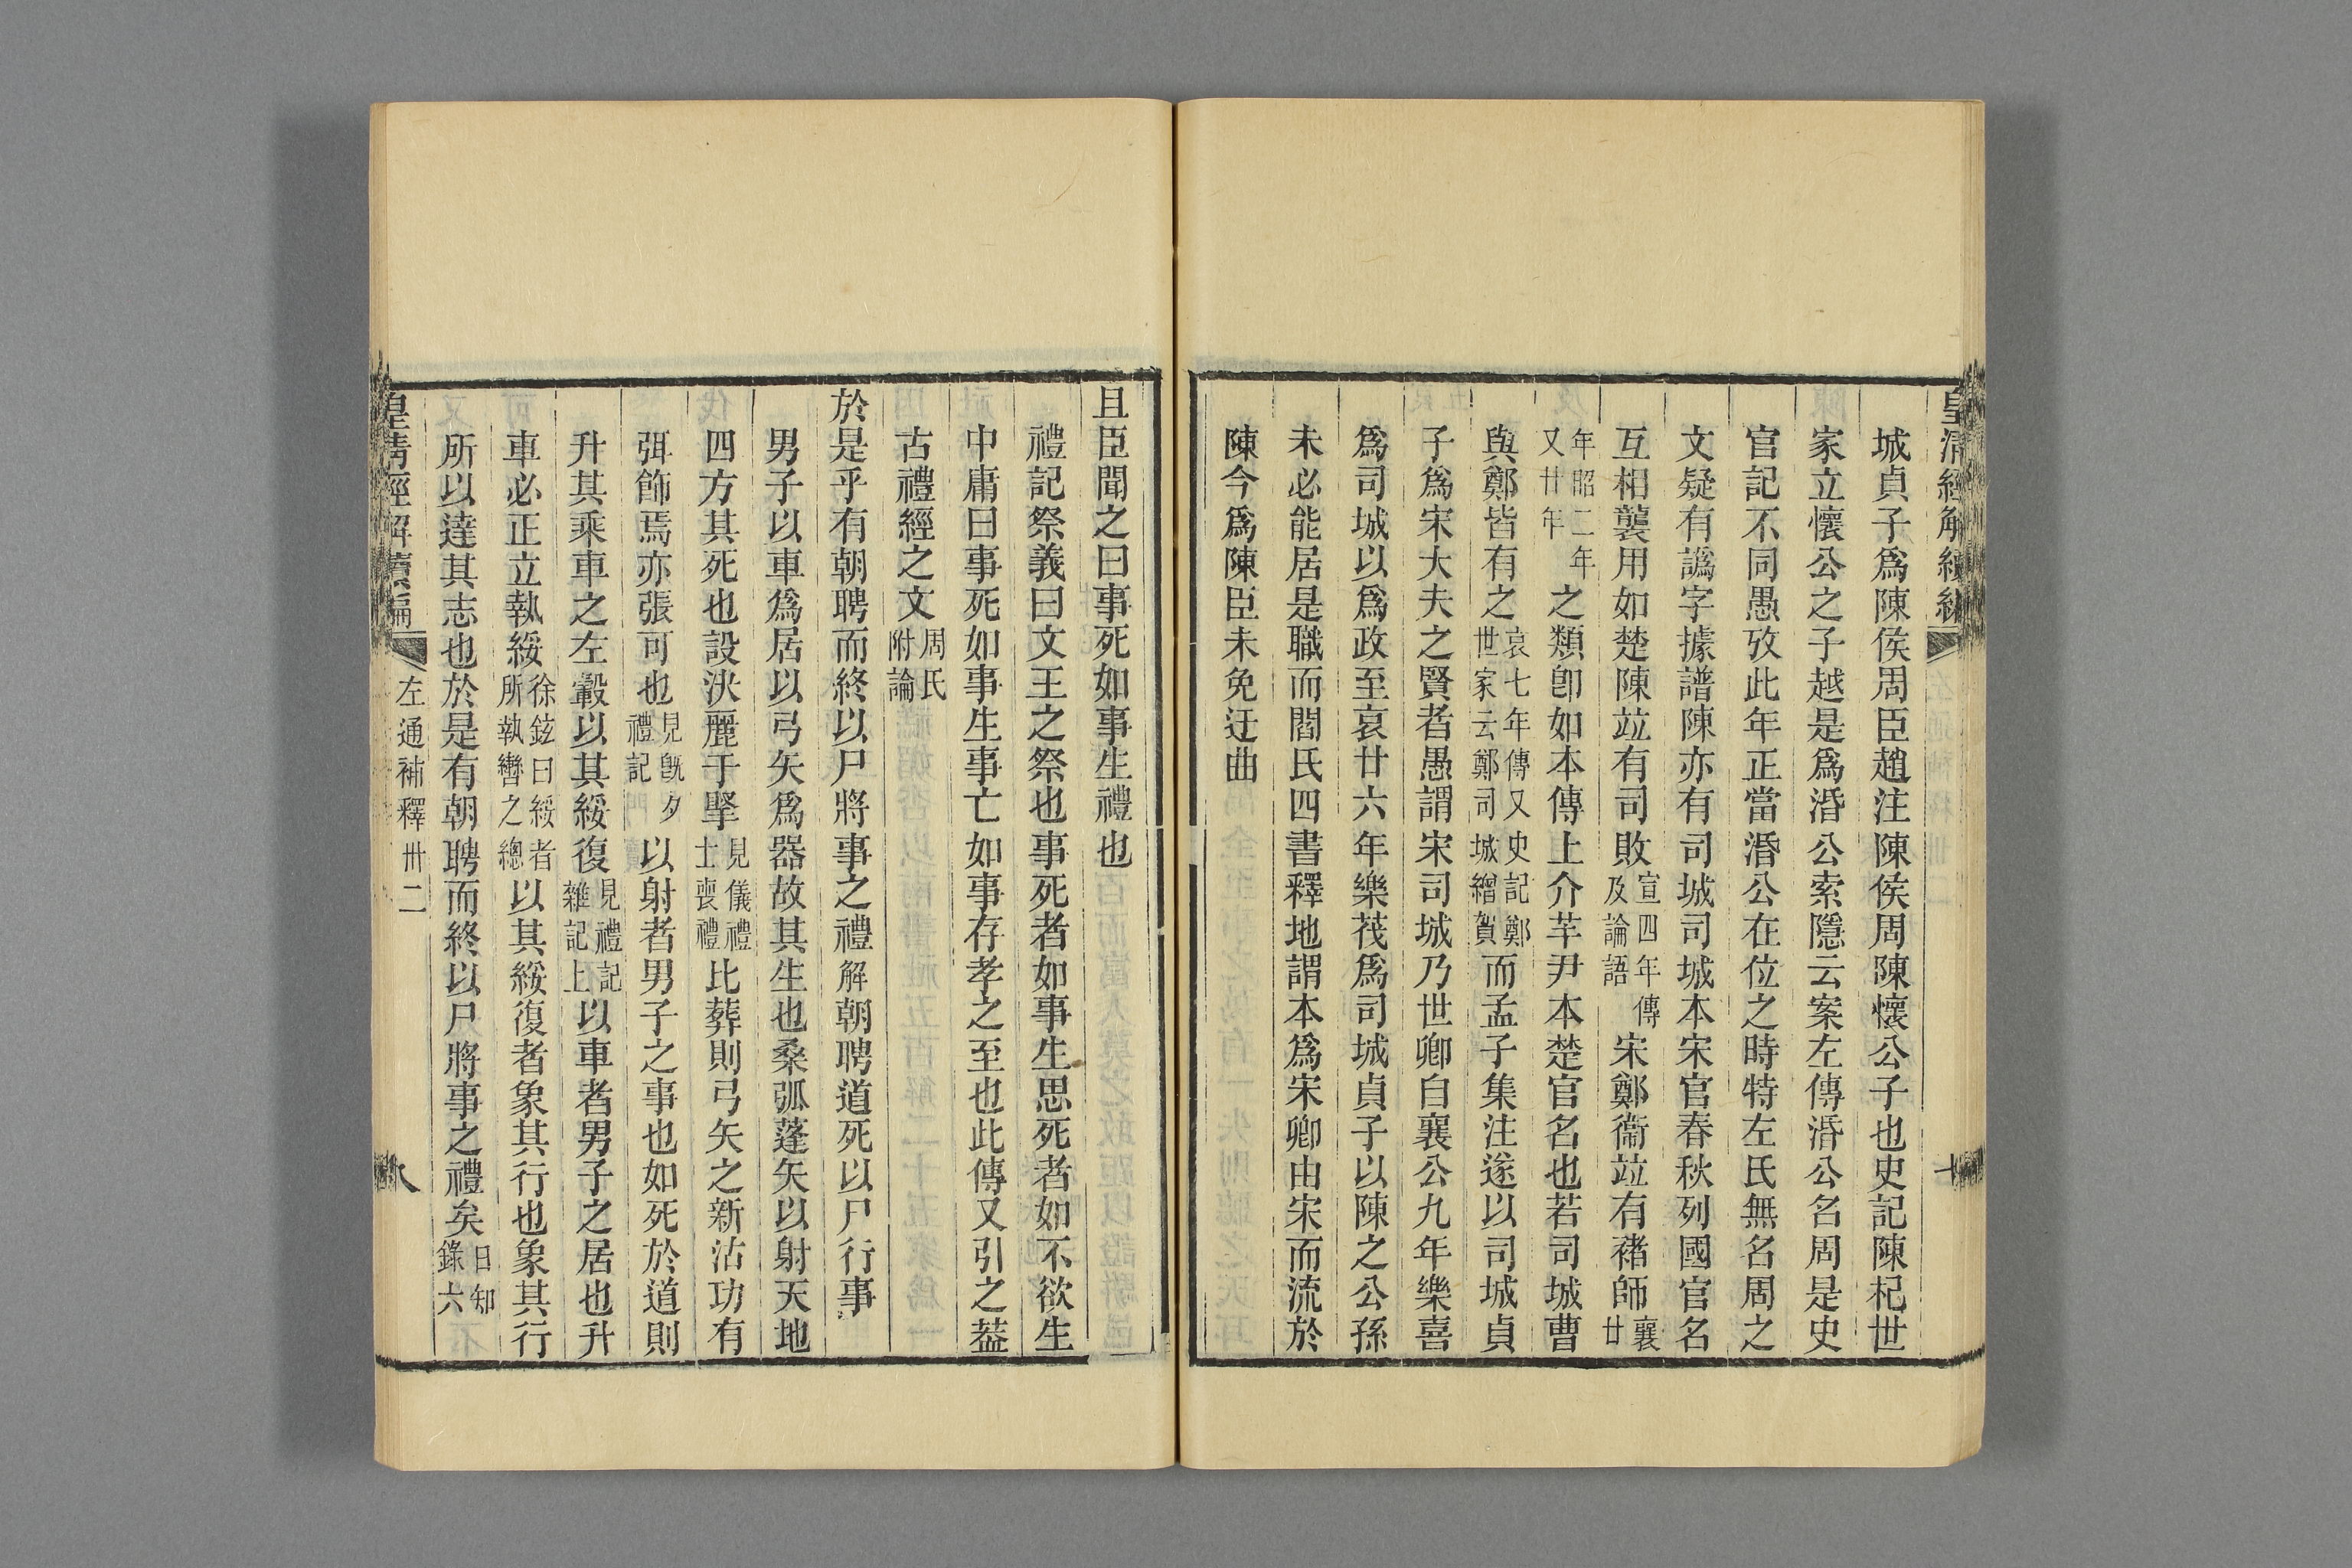 皇清經解續編
城貞子爲陳侯周臣趙注陳侯周陳懷公子也史記陳杞世
家立懷公之子越是爲湣公索隱云案左傳湣公名周是史
官記不同愚攷此年正當湣公在位之時特左氏無名周之
文疑有譌字據譜陳亦有司城司城本宋官春秋列國官名
互相襲用如楚陳竝有司敗宣四年傳及論語宋鄭衞竝有褚師襄廿
年昭二年又廿年之類卽如本傳上介芋尹本楚官名也若司城曹
與鄭皆有之哀七年傳又史記鄭世家云鄭司城繒賀而孟子集注遂以司城貞
子爲宋大夫之賢者愚謂宋司城乃世卿自襄公九年樂喜
爲司城以爲政至哀廿六年樂茷爲司城貞子以陳之公孫
未必能居是職而閻氏四書釋地謂本爲宋卿由宋而流於
陳今爲陳臣未免迂曲
且臣聞之曰事死如事生禮也
禮記祭義曰文王之祭也事死者如事生思死者如不欲生
中庸曰事死如事生事亡如事存孝之至也此傳又引之葢
古禮經之文周氏附論
於是乎有朝聘而終以尸將事之禮解朝聘道死以尸行事
男子以車爲居以弓矢爲器故其生也桑弧蓬矢以射天地
四方其死也設決麗于掔見儀禮士喪禮比葬則弓矢之新沽功有
弭飾焉亦張可也見旣夕禮記以射者男子之事也如死於道則
升其乘車之左轂以其綏復見禮記雜記上以車者男子之居也升
車必正立執綏徐鉉曰綏者所執轡之總以其綏復者象其行也象其行
所以達其志也於是有朝聘而終以尸將事之禮矣日知錄六
皇清經解續編
左通補釋卅二
八